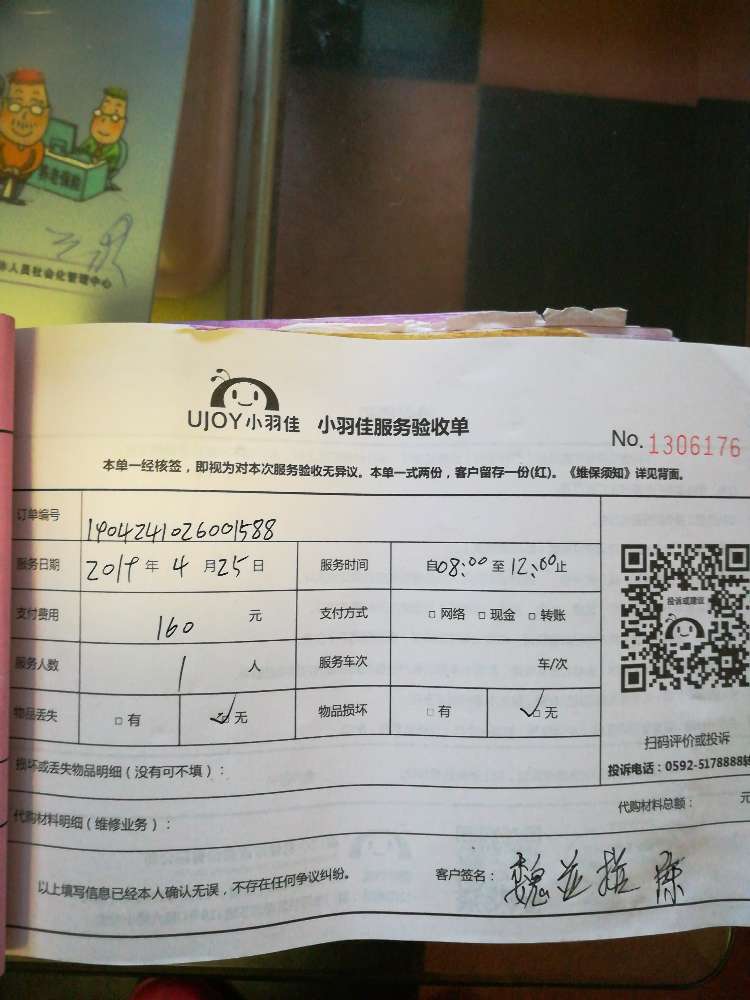 养老保险
休人员社会化管理中心
UJOY小羽佳 小羽佳服务验收单
No. 1306176
本单一经核签，即视为对本次服务验收无异议。本单一式两份，客户留存一份(红)。《维保须知》详见背面。
订单编号 1904241026001588
服务日期 2019 年 4 月 25 日 服务时间 自08:00 至 12:00止
支付费用 160 元 支付方式 □ 网络 □ 现金 □ 转账
投诉或建议
服务人数 1 人 服务车次 车/次
物品丢失 □ 有 □ 无 物品损坏 □ 有 □ 无
扫码评价或投诉
损坏或丢失物品明细（没有可不填）：
投诉电话：0592-5178888转
代购材料总额： 元
代购材料明细（维修业务）：
以上填写信息已经本人确认无误，不存在任何争议纠纷。
客户签名：魏